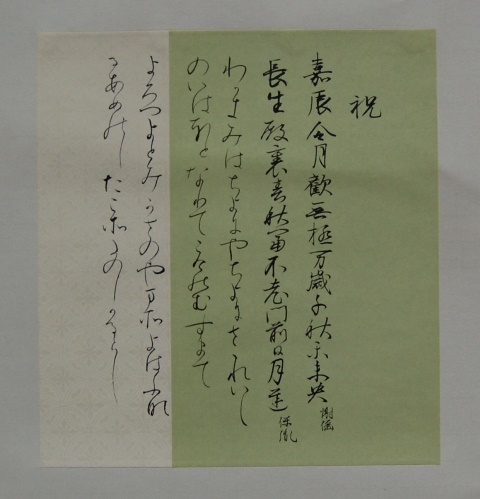 祝
嘉辰令月歡無極万歳千秋樂未央 謝偃
長生殿裏春秋富不老門前日月遲 保胤
わかきみはちよにやちよにさされいし
のいはほとなりてこけのむすまて
よろつよとみかさのやまそよはふな
るあめのしたこそたのしかるらし